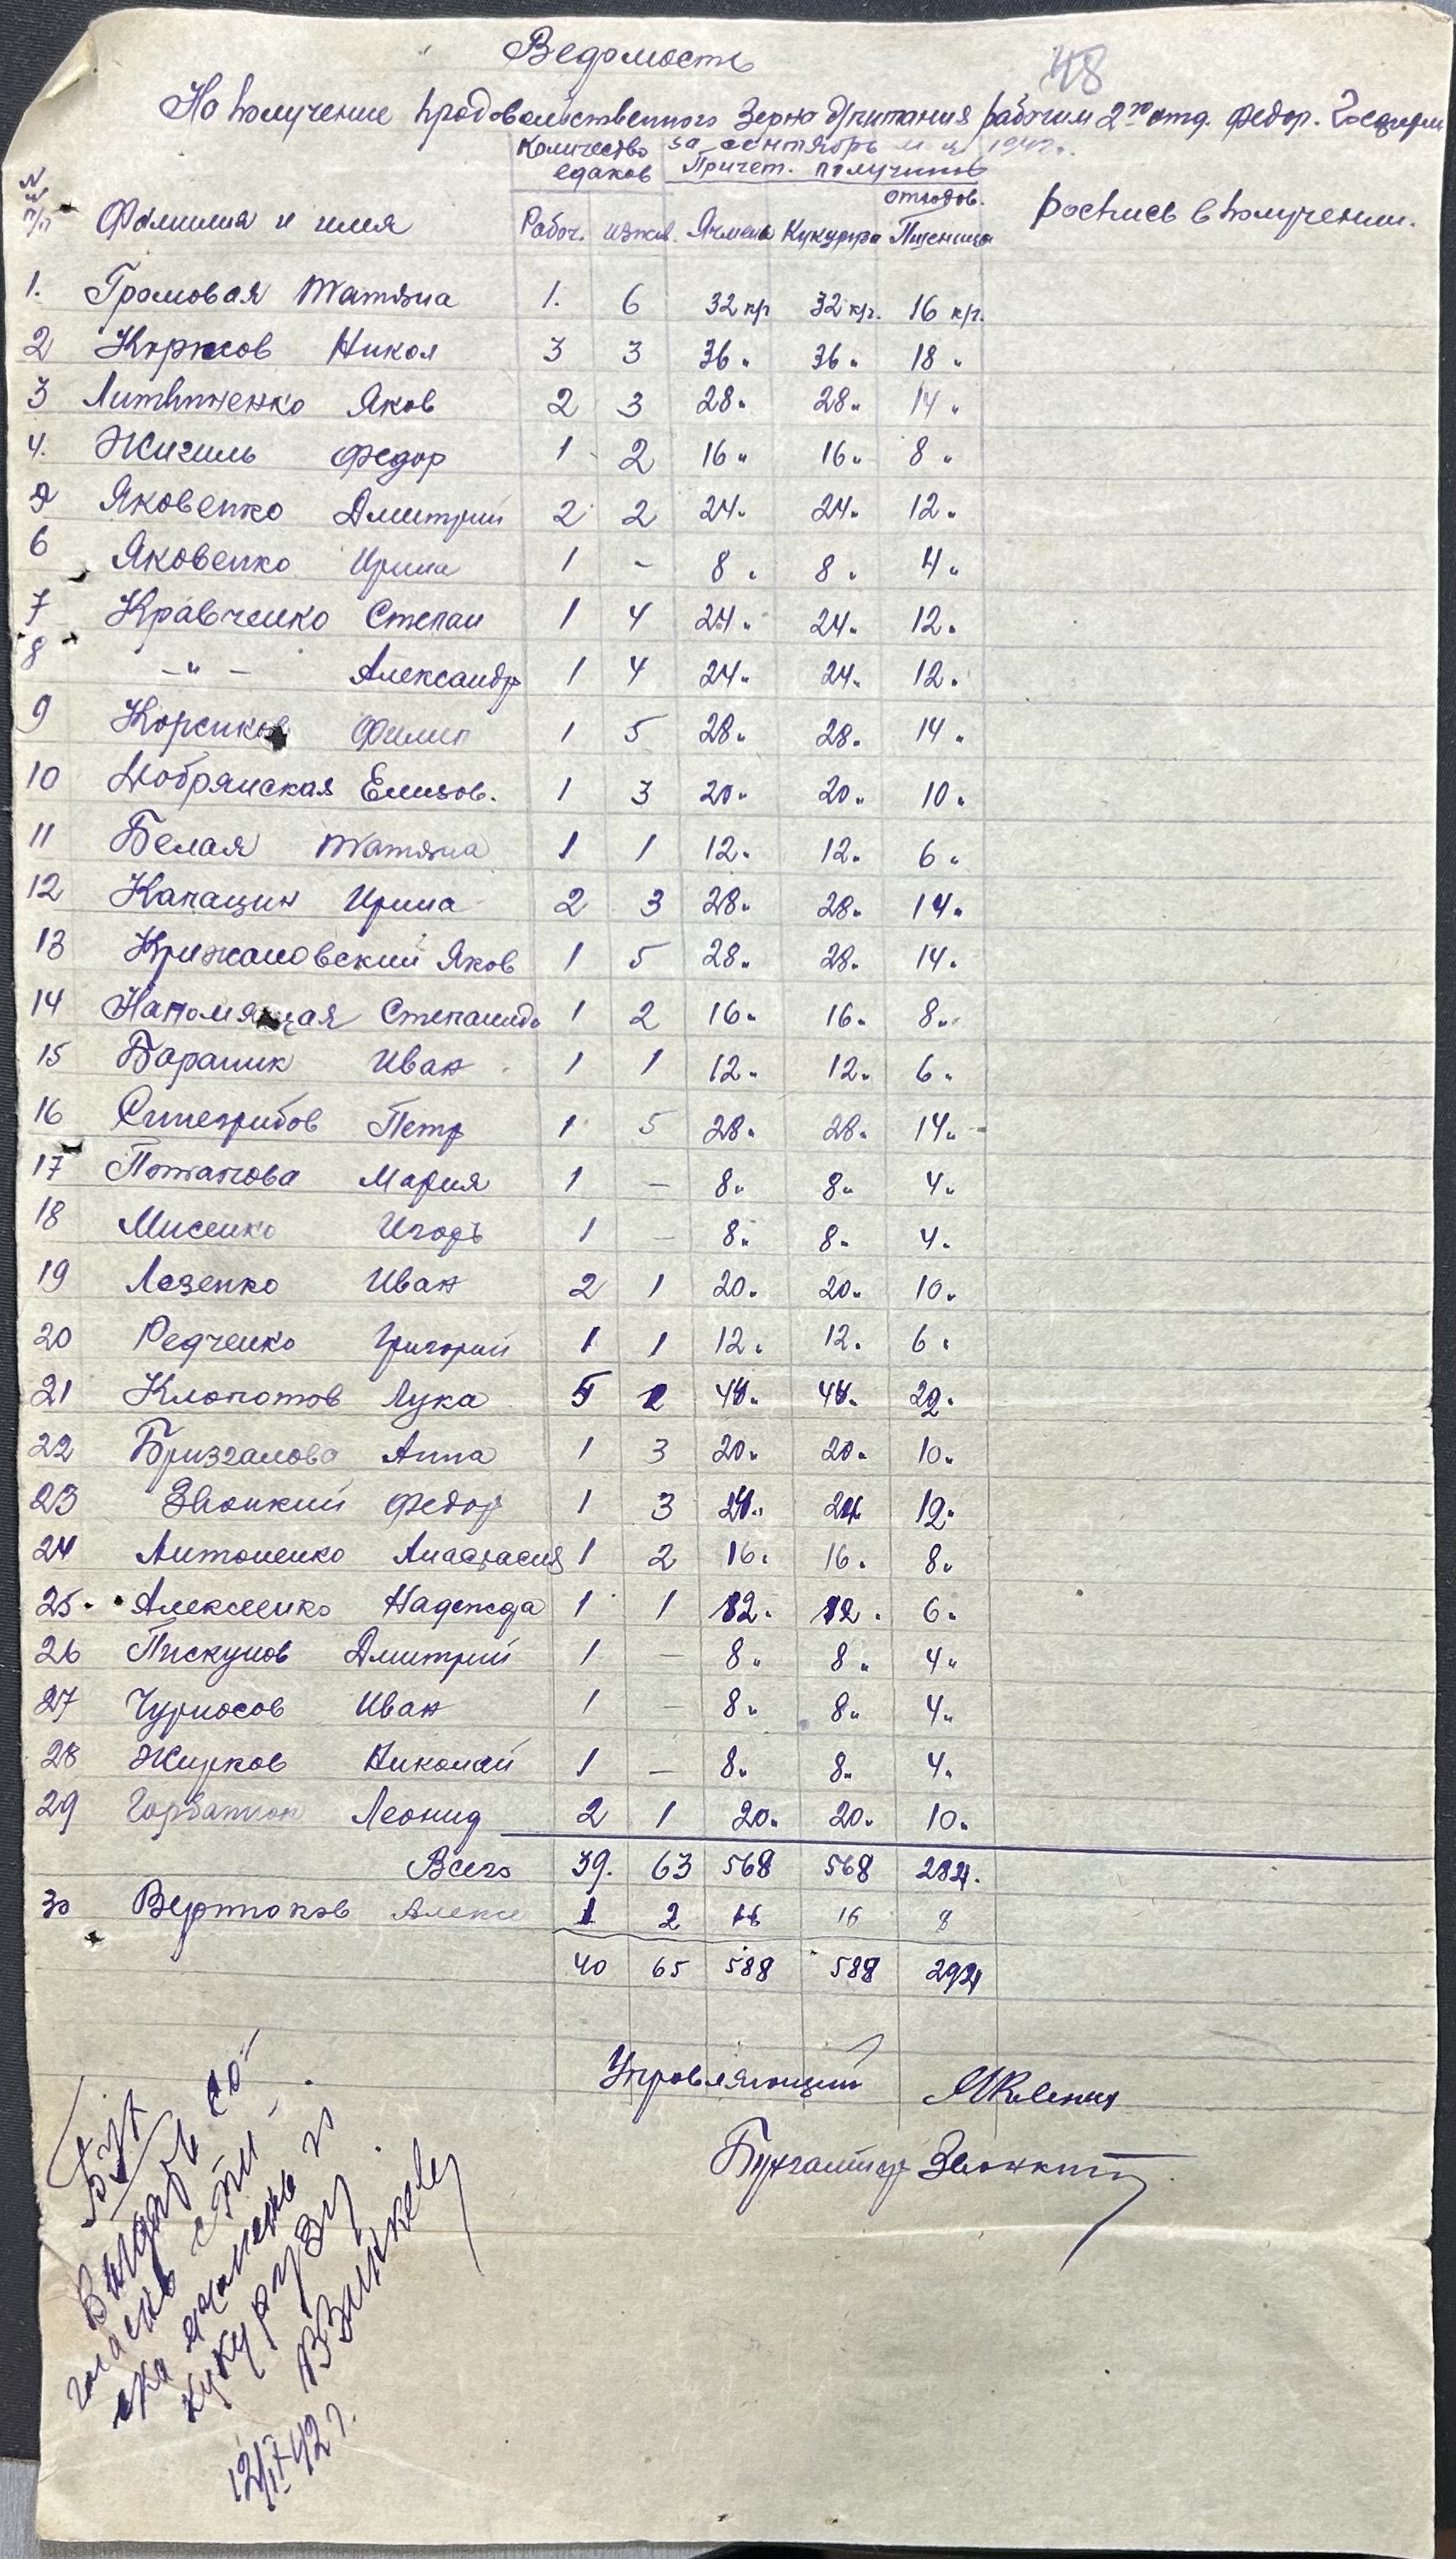 Ведомость
48
На получение продовольственного зерна д/питания рабочим 2го отд. Федор. Госферм
за сентябрь м-ц 1942 г.
Количество едаков Причет. получить
отходов.
№ п/п Фамилия и имя Рабоч. иждив. Ячмень Кукуруза Пшеница Роспись в получении.
1. Громовая Татяна 1. 6 32 кгр 32 кгр. 16 кгр.
2 Коржов Никол 3 3 36 " 36 " 18 "
3 Литвиненко Яков 2 3 28 " 28 " 14 "
4. Жигиль Федор 1 2 16 " 16 " 8 "
5 Яковенко Дмитрий 2 2 24 " 24 " 12 "
6 Яковенко Ирина 1 - 8 " 8 " 4 "
7 Кравченко Степан 1 4 24 " 24 " 12 "
8 -"- Александр 1 4 24 " 24 " 12 "
9 Корсиков Филип 1 5 28 " 28 " 14 "
10 Добрянская Елизов. 1 3 20 " 20 " 10 "
11 Белая Татяна 1 1 12 " 12 " 6 "
12 Капацин Ирина 2 3 28 " 28 " 14 "
13 Крижановский Яков 1 5 28 " 28 " 14 "
14 Степанида 1 2 16 " 16 " 8 "
15 Бараник Иван 1 1 12 " 12 " 6 "
16 Синегрибов Петр 1 5 28 " 28 " 14 "
17 Потапова Мария 1 - 8 " 8 " 4 "
18 Мисенко Игорь 1 - 8 " 8 " 4 "
19 Лозенко Иван 2 1 20 " 20 " 10 "
20 Редченко Григорий 1 1 12 " 12 " 6 "
21 Клопотов Лука 5 1 44 " 44 " 22 "
22 Бризгалова Анна 1 3 20 " 20 " 10 "
23 Звонкий Федор 1 3 24 " 24 12 "
24 Антоненко Анастасия 1 2 16 " 16 " 8 "
25 Алексеенко Надежда 1 1 12 " 12 " 6 "
26 Пискунов Дмитрий 1 - 8 " 8 " 4 "
27 Чурносов Иван 1 - 8 " 8 " 4 "
28 Жирков Николай 1 - 8 " 8 " 4 "
29 Горбатюк Леонид 2 1 20 " 20 " 10 "
Всего 39. 63 568 568 284.
30 Вертоков Алекс 1 2 16 16 8
40 65 588 588 294
Управляющий
Бухгалтер Звонкий
Бух
Выдать со-
гласно спи-
ска ячмень и
кукурузу
12/IX 42 г.